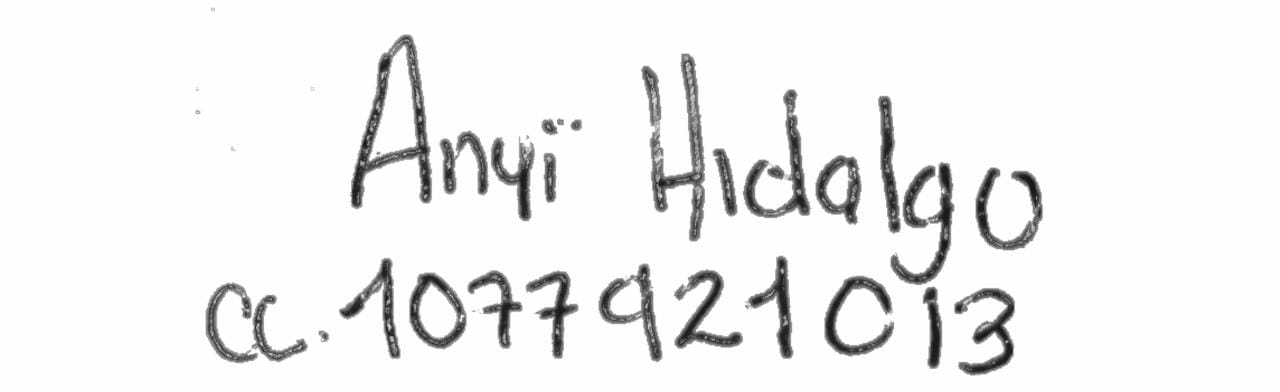 Anyï Hidalgo
cc. 1077921013